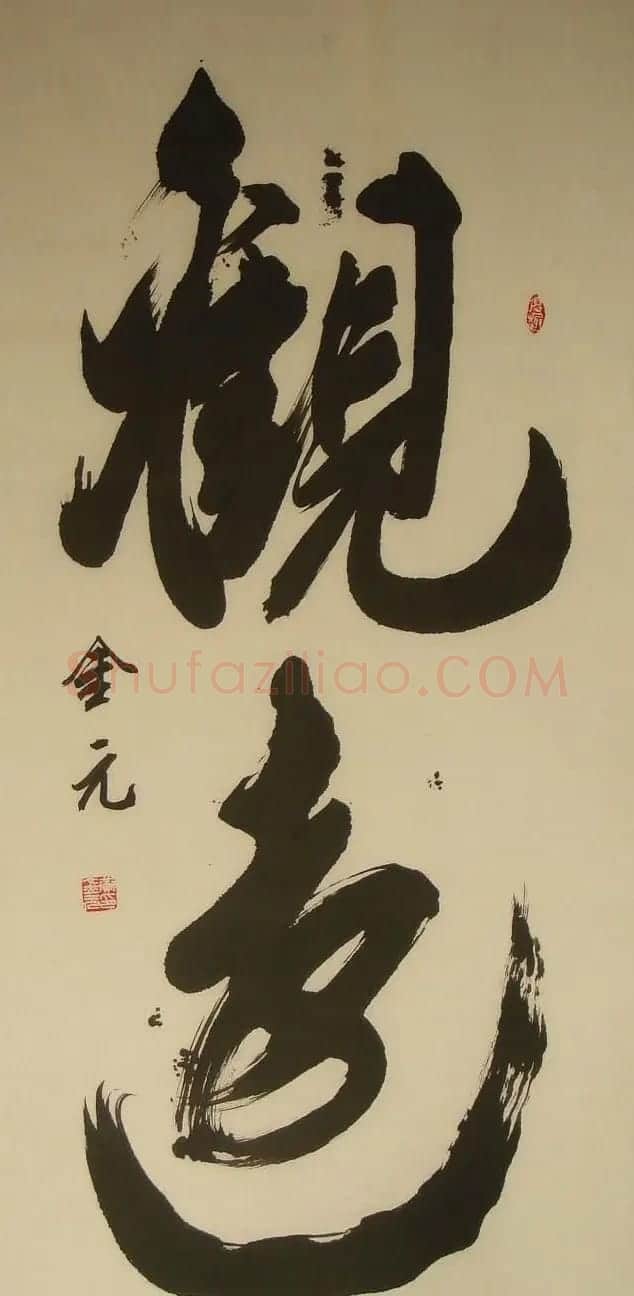 觀遠
金元
Shufaziliao.COM